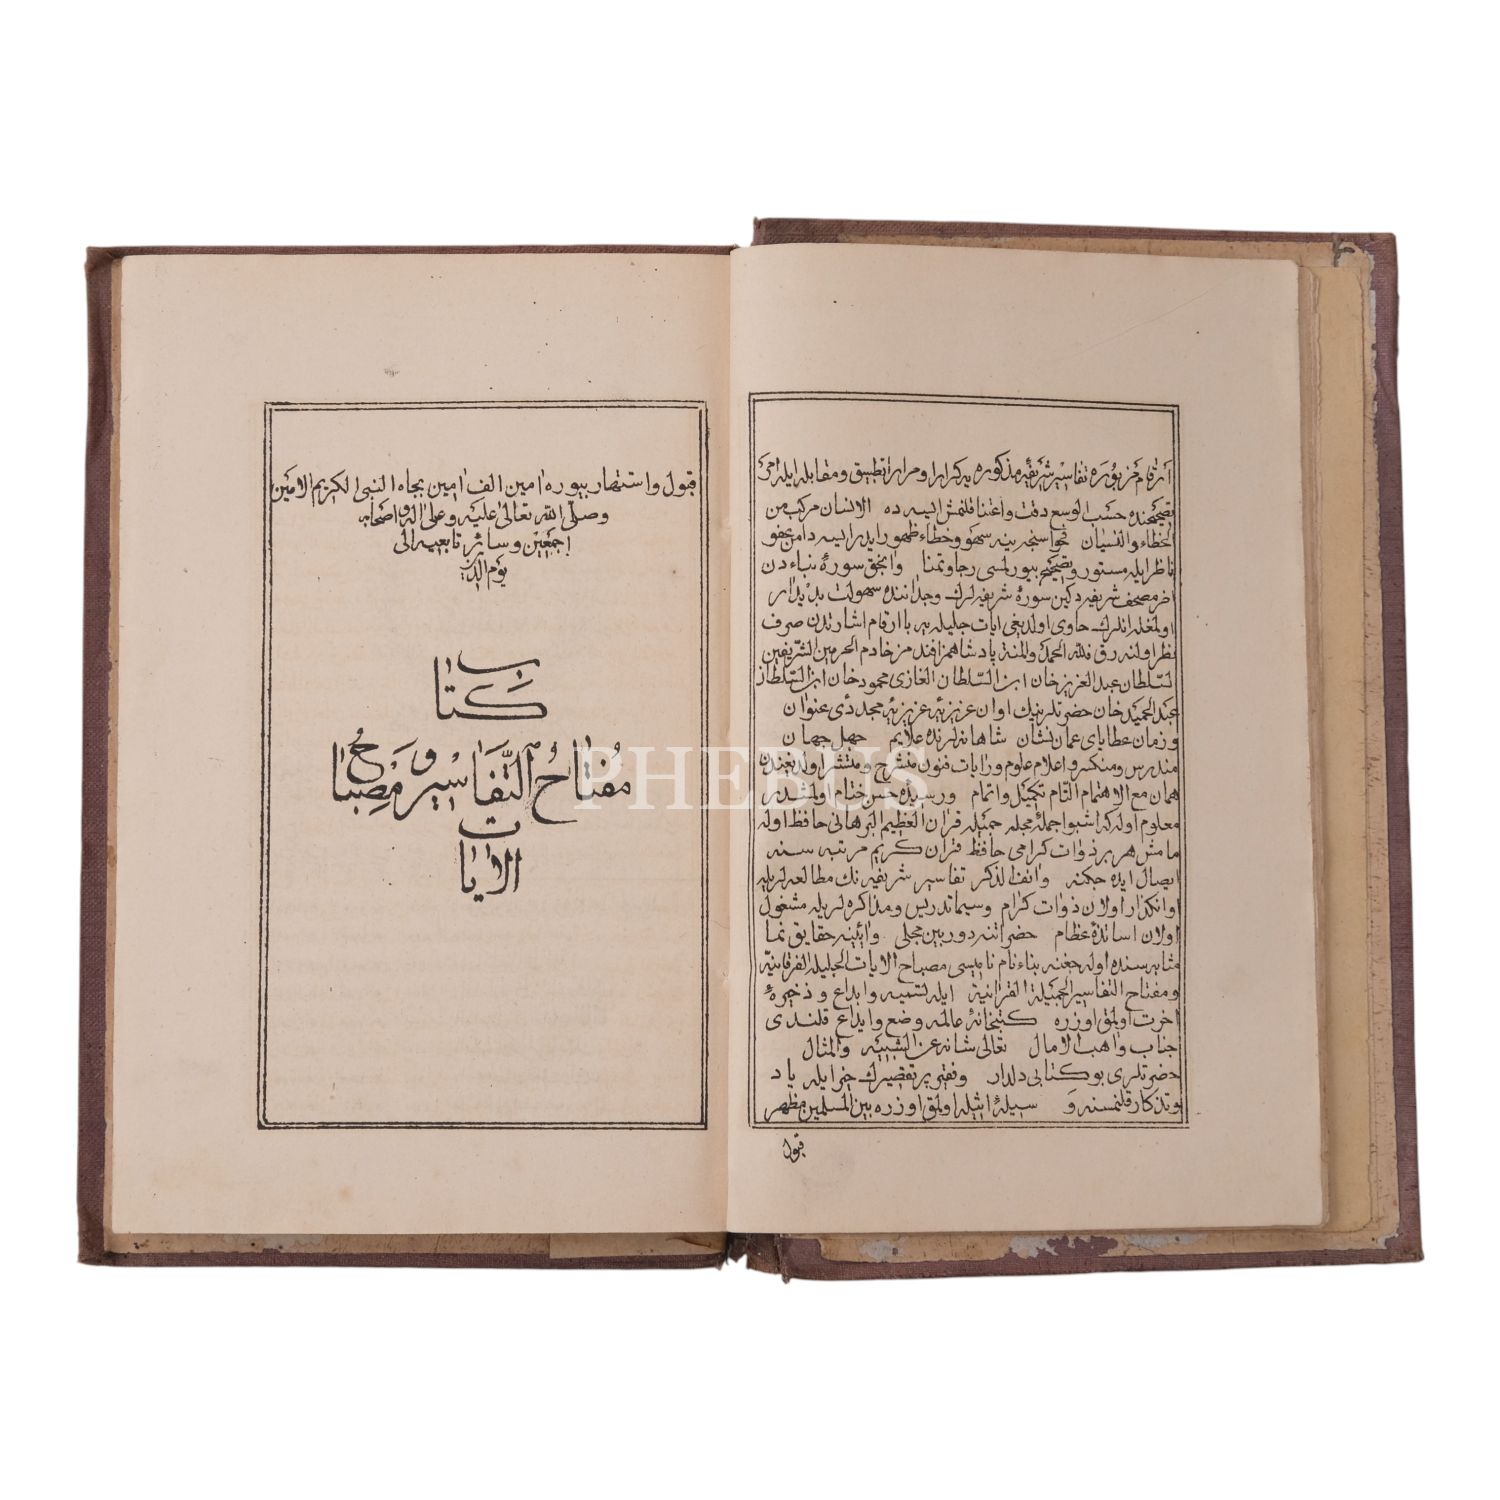 ارقام مزبوره تفاسیر شریفهٔ مذکوره یه کرارا و مرارا تطبیق و مقابله ایله امر
تصحیحنده حسب الوسع دقت و اعتنا قلنمش ایسه ده الانسان مرکب من
الخطاء والنسیان فحواسنجه ینه سهو و خطاء ظهور ایدر ایسه دامن عفو
ناظر ایله مستور و تصحیح بیورلمسی رجا و تمنا وانجق سورهٔ نباء دن
اخر مصحف شریفه دکین سورهٔ شریفه لرك وجداننده سهولت بدیدار
اولمغله انلرك حاوی اولدیغی ایات جلیله یه با ارقام اشارتدن صرف
نظر اولنه رق فلله الحمد والمنة پادشاهمز افندمز خادم الحرمین الشریفین
السلطان عبد العزیز خان ابن السلطان الغازی محمود خان ابن السلطان
عبد الحمید خان حضرتلرینك اوان عزیزیهٔ مجددی عنوان
و زمان عطابای عمان نشان شاهانه لرنده علایم جهل جهان
مندرس و منکسر و اعلام علوم و رایات فنون منشرح و منتشر اولدیغندن
همان مع الاهتمام التام تکمیل و اتمام و رسیدهٔ حسن ختام اولمشدر
معلوم اوله که اشبو مجلهٔ جمیله قران العظیم البرهانی حافظ اوله
مامش هر بر ذوات کرامی حافظ قران کریم مرتبه سنه
ایصال ایده جکنه وانف الذکر تفاسیر شریفه نك مطالعه لریله
اولان ذوات کرام و سیما تدریس و مذاکره لریله مشغول
اولان اساتذهٔ عظام حضراتنه دوربین مجلی و ایینه حقایق نما
مثابه سنده اوله جغنه بناء نام نامیسی مصباح الایات الجلیلة الفرقانیة
و مفتاح التفاسیر الجمیلة القرانیة ایله تسمیه و ابداع و ذخیرهٔ
اخرت اولمق اوزره کتبخانهٔ عالمه وضع و ایداع قلندی
جناب واهب الامال تعالی شانه عن الشبیه والمثال
حضرتلری بو کتابی دلدار و فقیر پر تقصیرك خیر ایله یاد
و تذکار قلنمسنه و سیلهٔ اولمق اوزره بین المسلمین مظهر
قبول
قبول و اشتهار بیوره امین الف امین بجاه النبی الکریم الامین
وصلّی الله تعالیٰ علیه وعلی اله واصحابه
اجمعین وسائر تابعیه الی
یوم الدین
کتاب
مفتاح التفاسیر ومصباح
الایات
PHEBUS